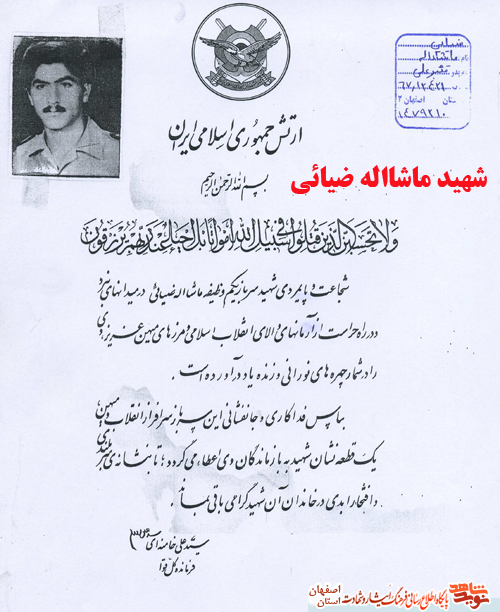 ارتش جمهوری اسلامی ایران
بسم الله الرحمن الرحیم
ضیایی
نام ماشااله
شیرعلی
۶۷،۱۲،۲۱
ستان اصفهان ۲
۱۴۷۹۲۱۰
شهید ماشااله ضیائی
ولا تحسبن الذین قتلوا فی سبیل الله امواتا بل احیاء عند ربهم یرزقون
شجاعت و پایمردی شهید سرباز یکم وظیفه ماشااله ضیائی در میدانهای نبرد
و در راه حراست از آرمانهای والای انقلاب اسلامی و مرزهای میهن عزیز، وی
را در شمار چهره های نورانی و زنده یاد درآورده است.
بپاس فداکاری و جانفشانی این سرباز سرافراز انقلاب و میهن،
یک قطعه نشان شهید به بازماندگان وی اعطاء می گردد؛ تا بنشانه ی سربلندی
و افتخار ابدی در خاندان آن شهید گرامی باقی بماند.
سید علی خامنه ای
فرمانده کل قوا
شاهد
نوید
پایگاه اطلاع رسانی فرهنگ ایثار و شهادت اصفهان
استان